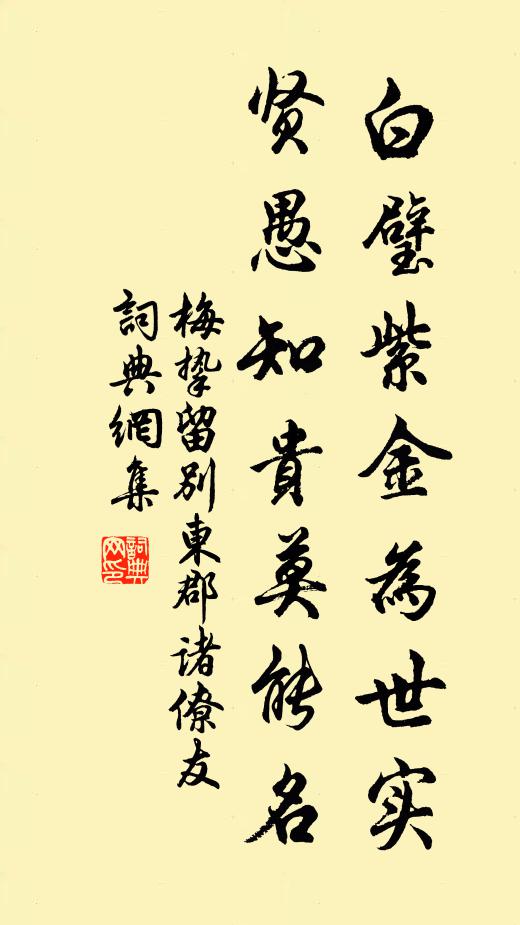 白璧紫金為世实
贤愚知貴莫能名
梅挚留别東郡诸僚友
詞典網集
詞典网印